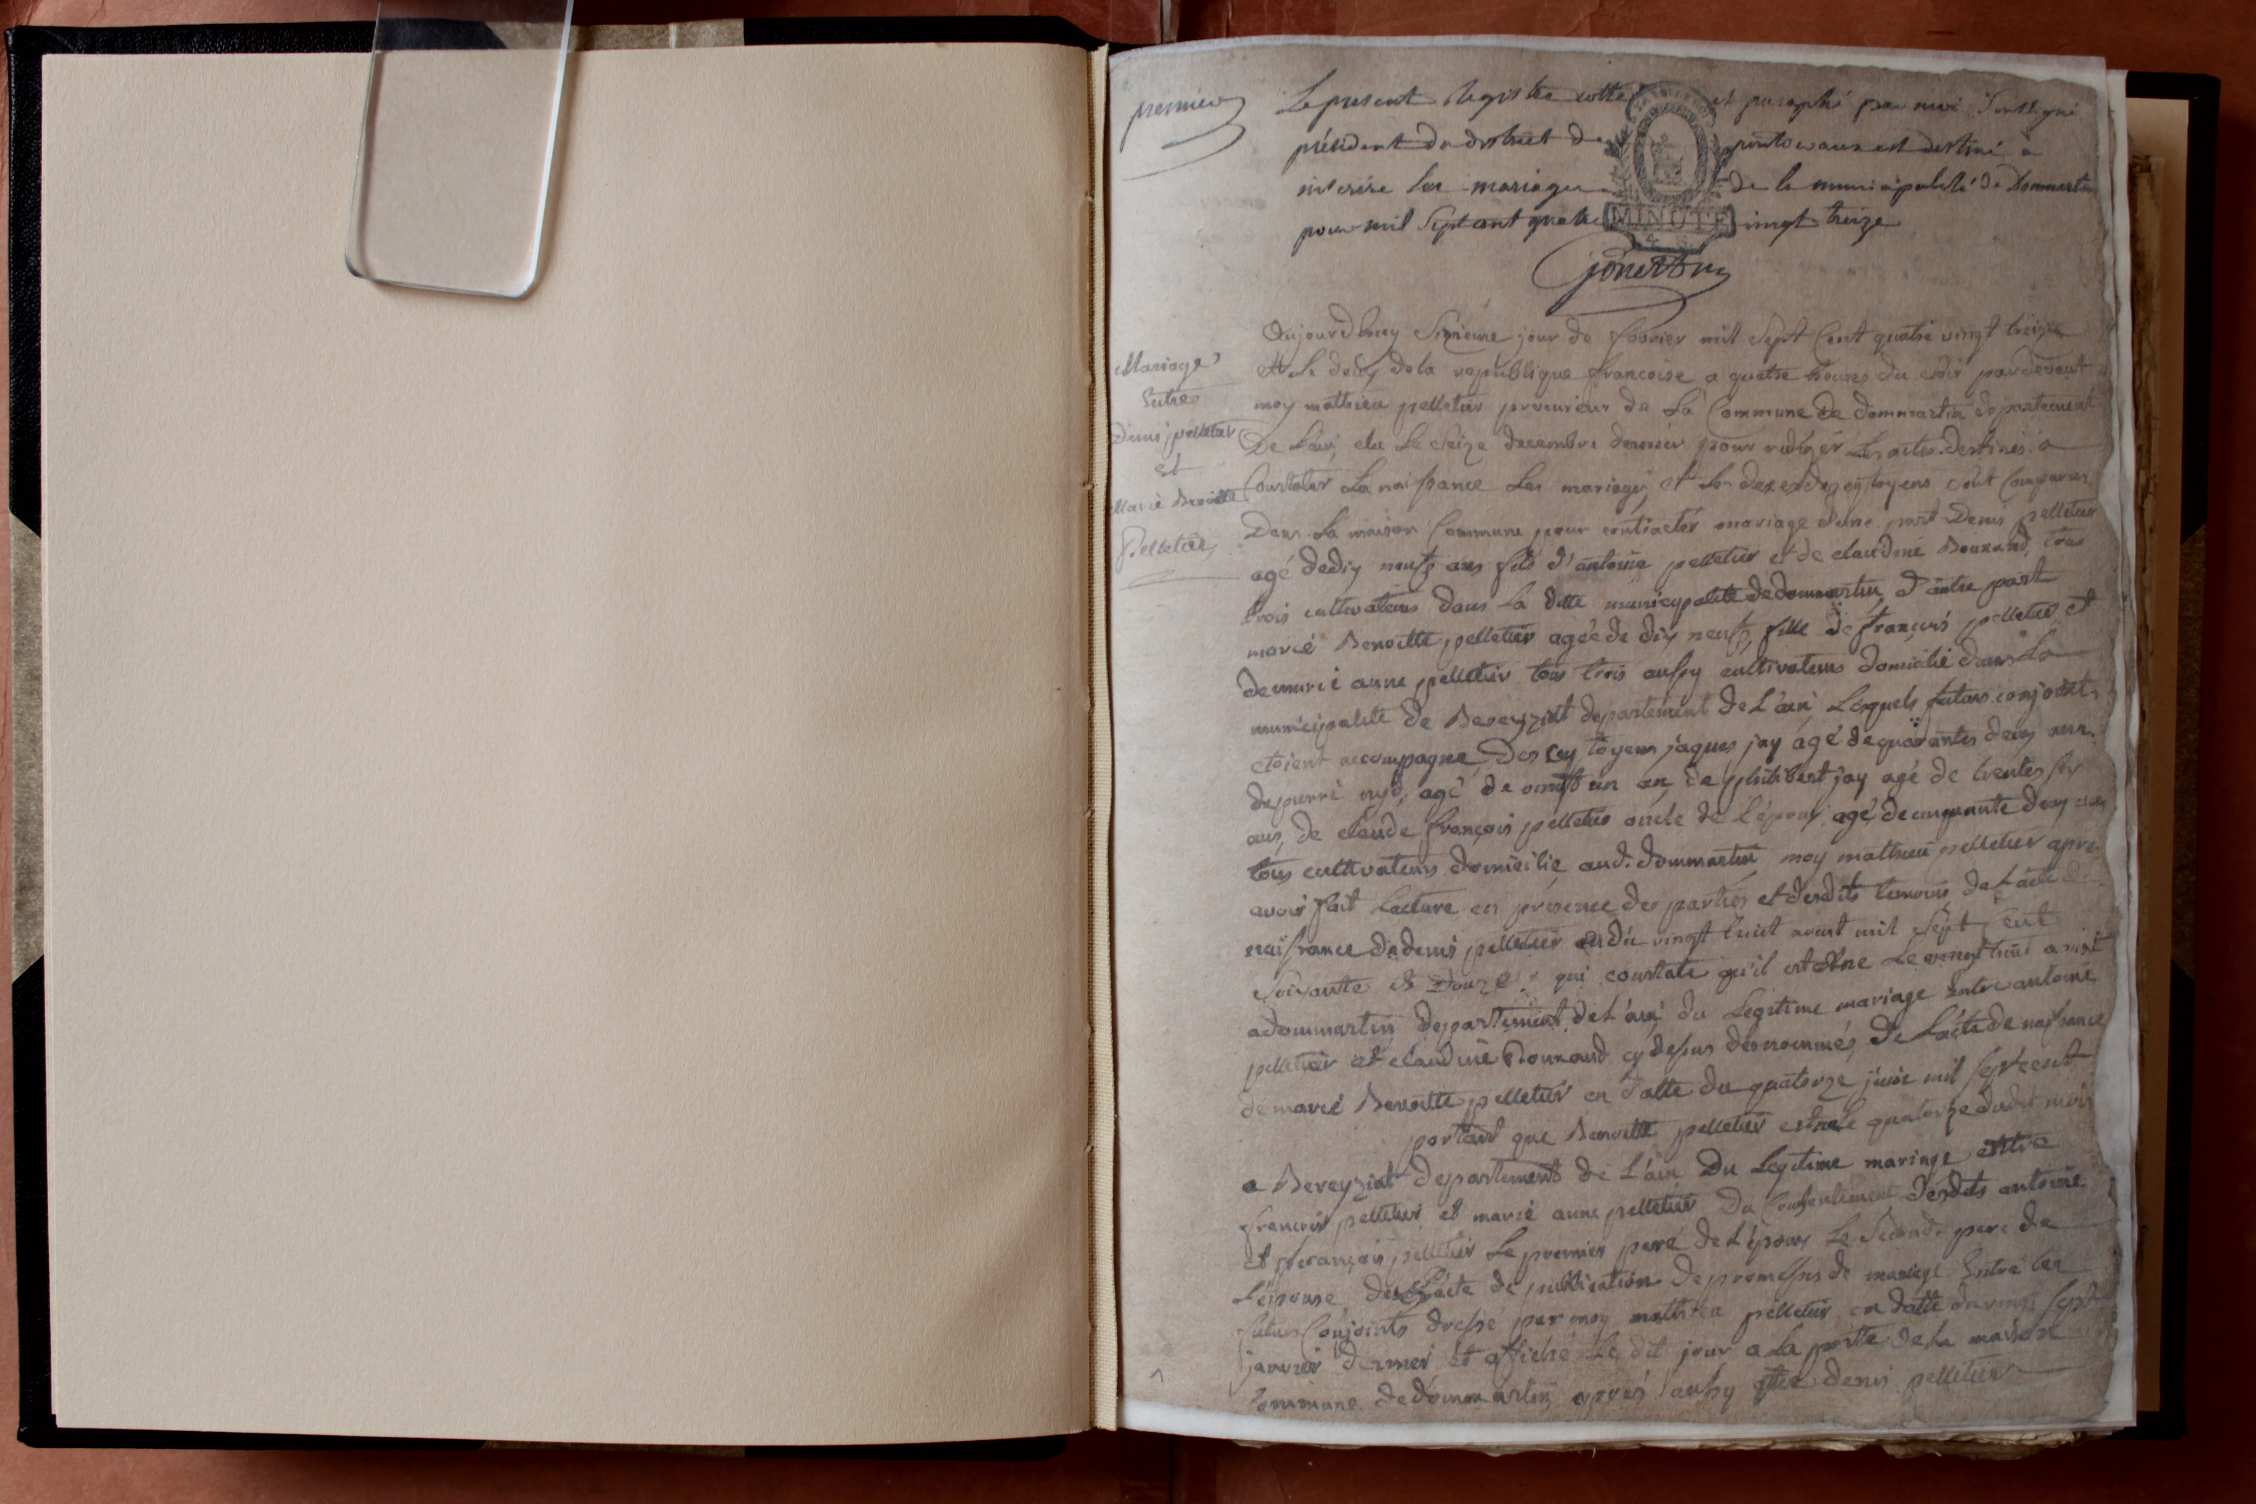 premier
Le present Registre cotté et paraphé par moi soussigné
président du district de pontdevaux est destiné a
inscrire les mariages de la municipalité de Dommartin
pour mil sept cent quatre vingt treize
MINUTE
Mariage
Entre
Denis pelletier
Et
Marie Benoitte
Pelletier
Aujourdhuy Sixieme jour de fevrier mil Sept Cent quatre vingt treize
Et le deux de la republique francoise a quatre heures du soir pardevant
moy mathieu pelletier procureur de La Commune de dommartin departement
De L'ain, elu Le Seize decembre dernier pour rediger Les actes destinés a
Constater La naissance Les mariages et Les deces des cytoyens sont comparus
Dans La maison Commune pour contracter mariage d'une part Denis pelletier
agé dedix neufs ans fils d'antoine pelletier et de claudine Bourand, tous
trois cultivateurs dans La ditte municypalité dedommartin, d'autre part
marie Benoitte pelletier agée de dix neufs, fille de françois pelletier et
demarie anne pelletier tous trois aussy cultivateurs domicilié dans La
municipalité de Bereyziat departement de L'ain Lesquels futurs conjoints
etoient accompagné Des cytoyens jaques jay agé dequarantes deux ans.
depierre agé de vingt un an, de philibert jay agé de trentes six
ans, de claude françois pelletier oncle de l'époux, agé de cinquante deux ans
tous cultivateurs domicilié aud. dommartin moy mathieu pelletier apres
avoir fait Lecture en présence des parties et desdits temoins de L'acte de
naissance de denis pelletier en du vingt huit aoust mil Sept Cent
Soixante et Douze qui constate qu'il est Né Le vingt huit aoust
adommartin departement de L'ain du Légitime mariage Entre antoine
pelletier et claudine Bourand cydessus dénommés, De L'acte de naissance
de marie Benoitte pelletier en datte du quatorze juin mil septcent
portant que Benoitte pelletier est née le quatorze dudit mois
a Bereyziat departement de L'ain Du Legitime mariage entre
françois pelletier et marie anne pelletier Du Consentement desdits antoine
et françois pelletier Le premier pere de L'époux Le Second pere de
L'épouse, de L'acte de publication de promesses de mariage Entre les
futurs Conjoints dressé par moy mathieu pelletier en datte du vingt sept
janvier dernier et affiché Le dit jour a La porte de La maison
Commune dedommartin, après aussy que denis pelletier